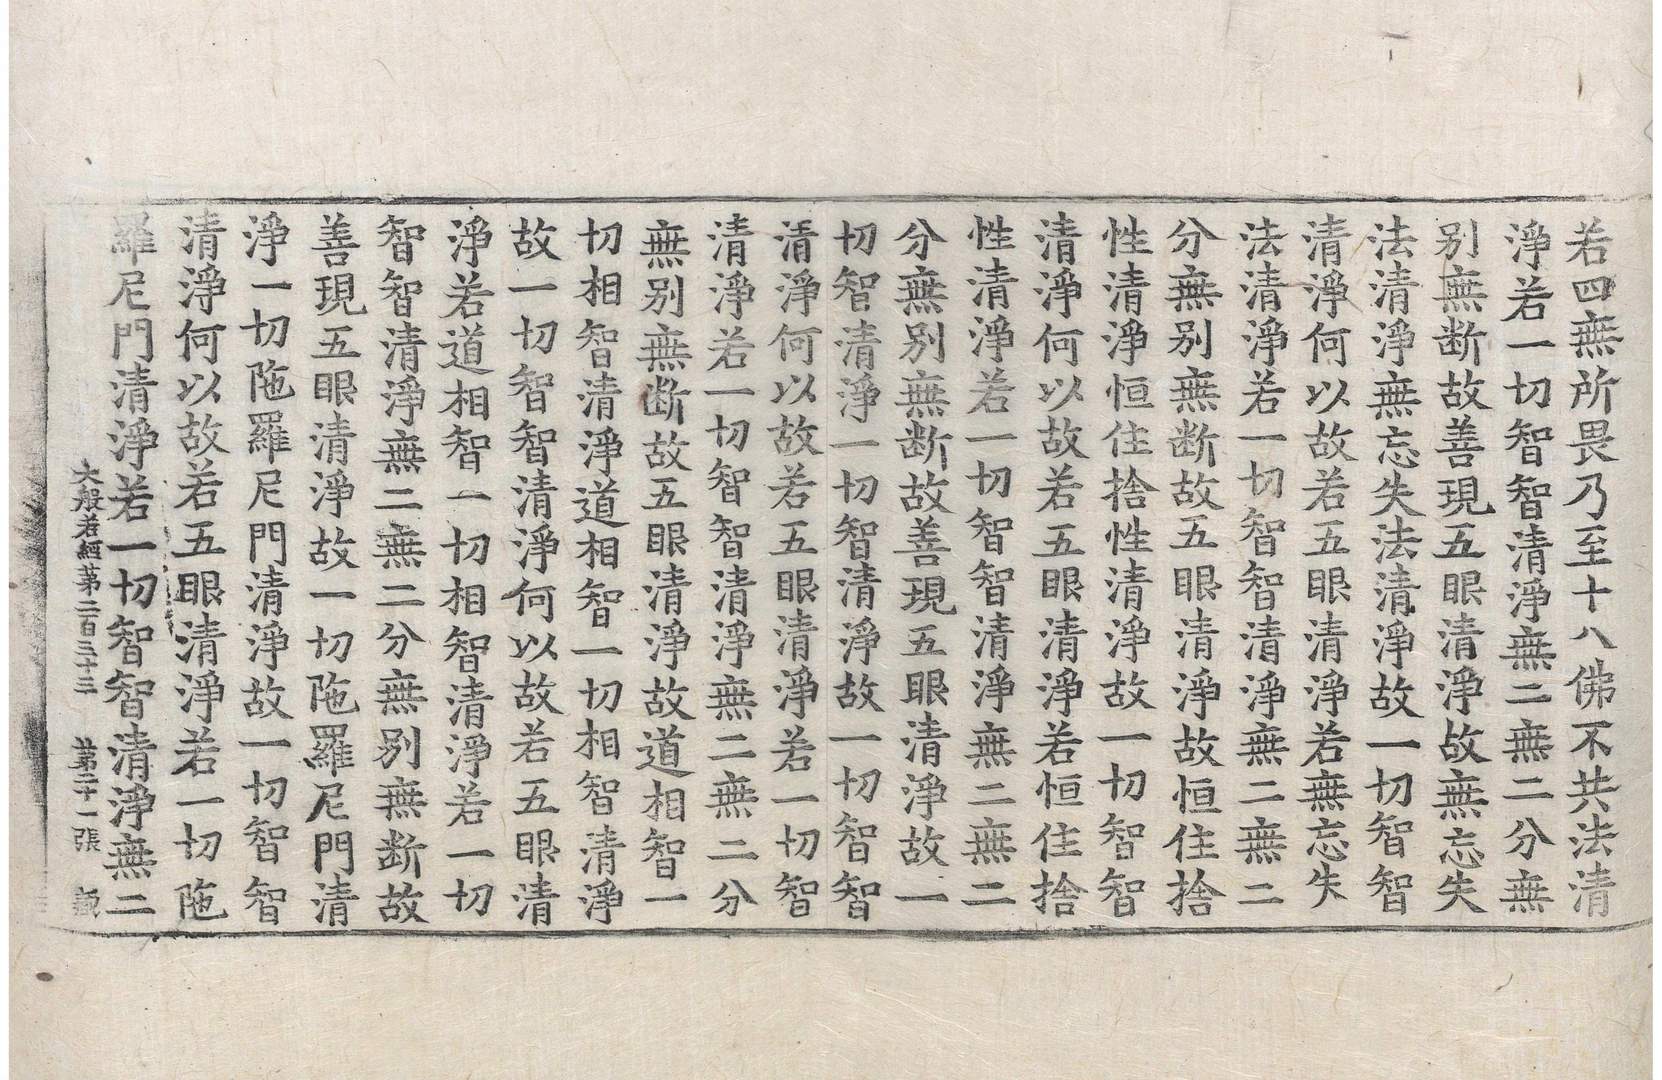 若四無所畏乃至十八佛不共法清
淨若一切智智清淨無二無二分無
别無断故善現五眼清淨故無忘失
法清淨無忘失法清淨故一切智智
清淨何以故若五眼清淨若無忘失
法清淨若一切智智清淨無二無二
分無别無断故五眼清淨故恒住捨
性清淨恒住捨性清淨故一切智智
清淨何以故若五眼清淨若恒住捨
性清淨若一切智智清淨無二無二
分無别無断故善現五眼清淨故一
切智清淨一切智清淨故一切智智
清淨何以故若五眼清淨若一切智
清淨若一切智智清淨無二無二分
無别無断故五眼清淨故道相智一
切相智清淨道相智一切相智清淨
故一切智智清淨何以故若五眼清
淨若道相智一切相智清淨若一切
智智清淨無二無二分無别無断故
善現五眼清淨故一切陁羅尼門清
淨一切陁羅尼門清淨故一切智智
清淨何以故若五眼清淨若一切陁
羅尼門清淨若一切智智清淨無二
大般若經第二百三十三 第二十一張 藏